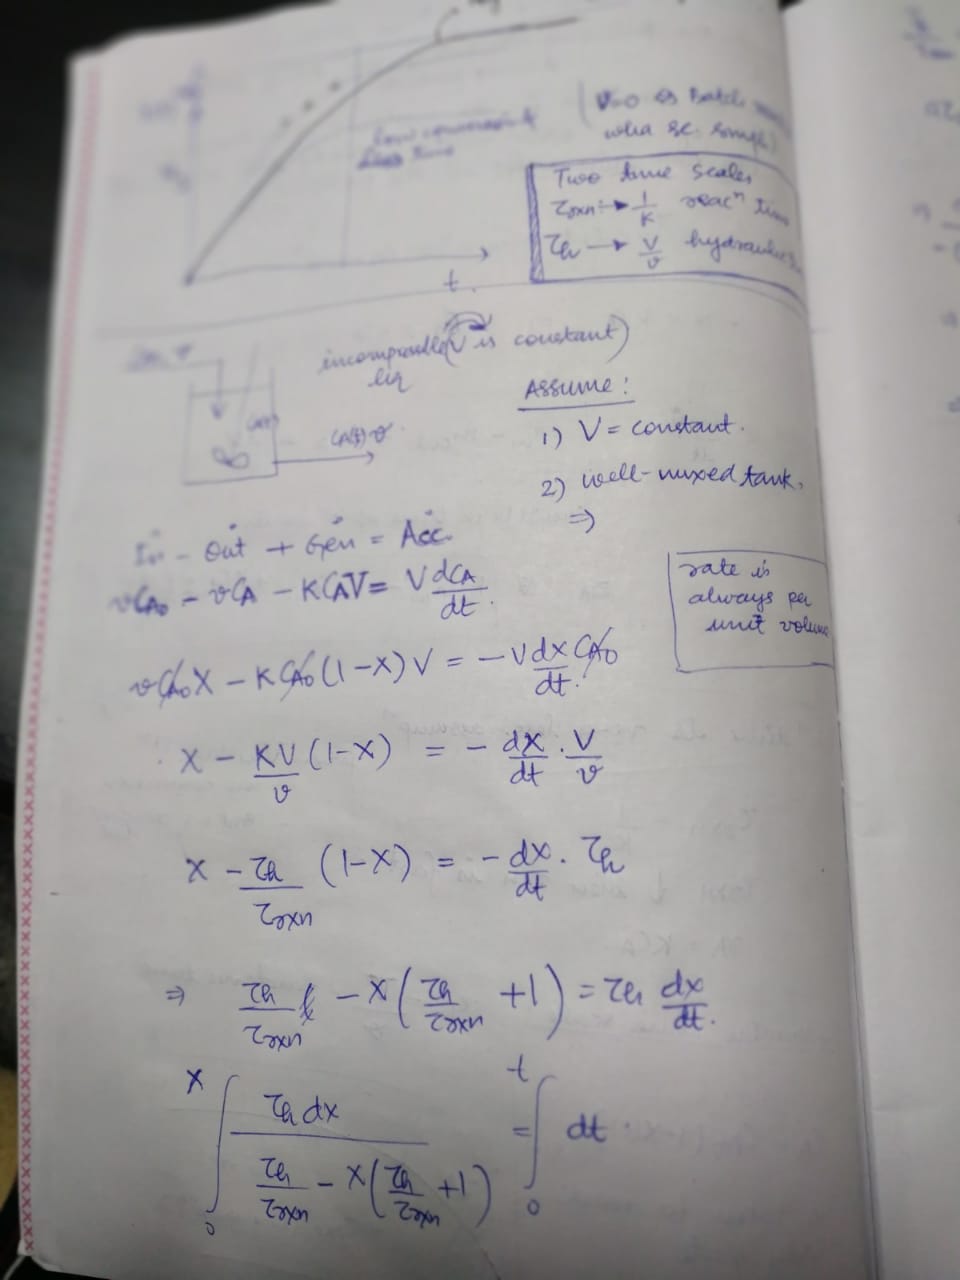 t
V=0 Batch
Two time scales
τrxn → 1/K reacⁿ time
τh → V/v hydraulic
incompressible (V is constant)
liq
Assume:
1) V = constant.
CA(t) v
2) well-mixed tank.
⇒
In - Out + Gen = Acc.
vCA₀ - vCA - KCAV = V dCA/dt.
rate is
always per
unit volume
vCA₀X - KCA₀(1-X)V = -V dX/dt. CA₀
X - KV/v (1-X) = - dX/dt . V/v
X - τh/τrxn (1-X) = - dX/dt . τh
⇒ τh/τrxn - X(τh/τrxn + 1) = τh dX/dt.
∫₀ˣ τh dX / (τh/τrxn - X(τh/τrxn + 1)) = ∫₀ᵗ dt.